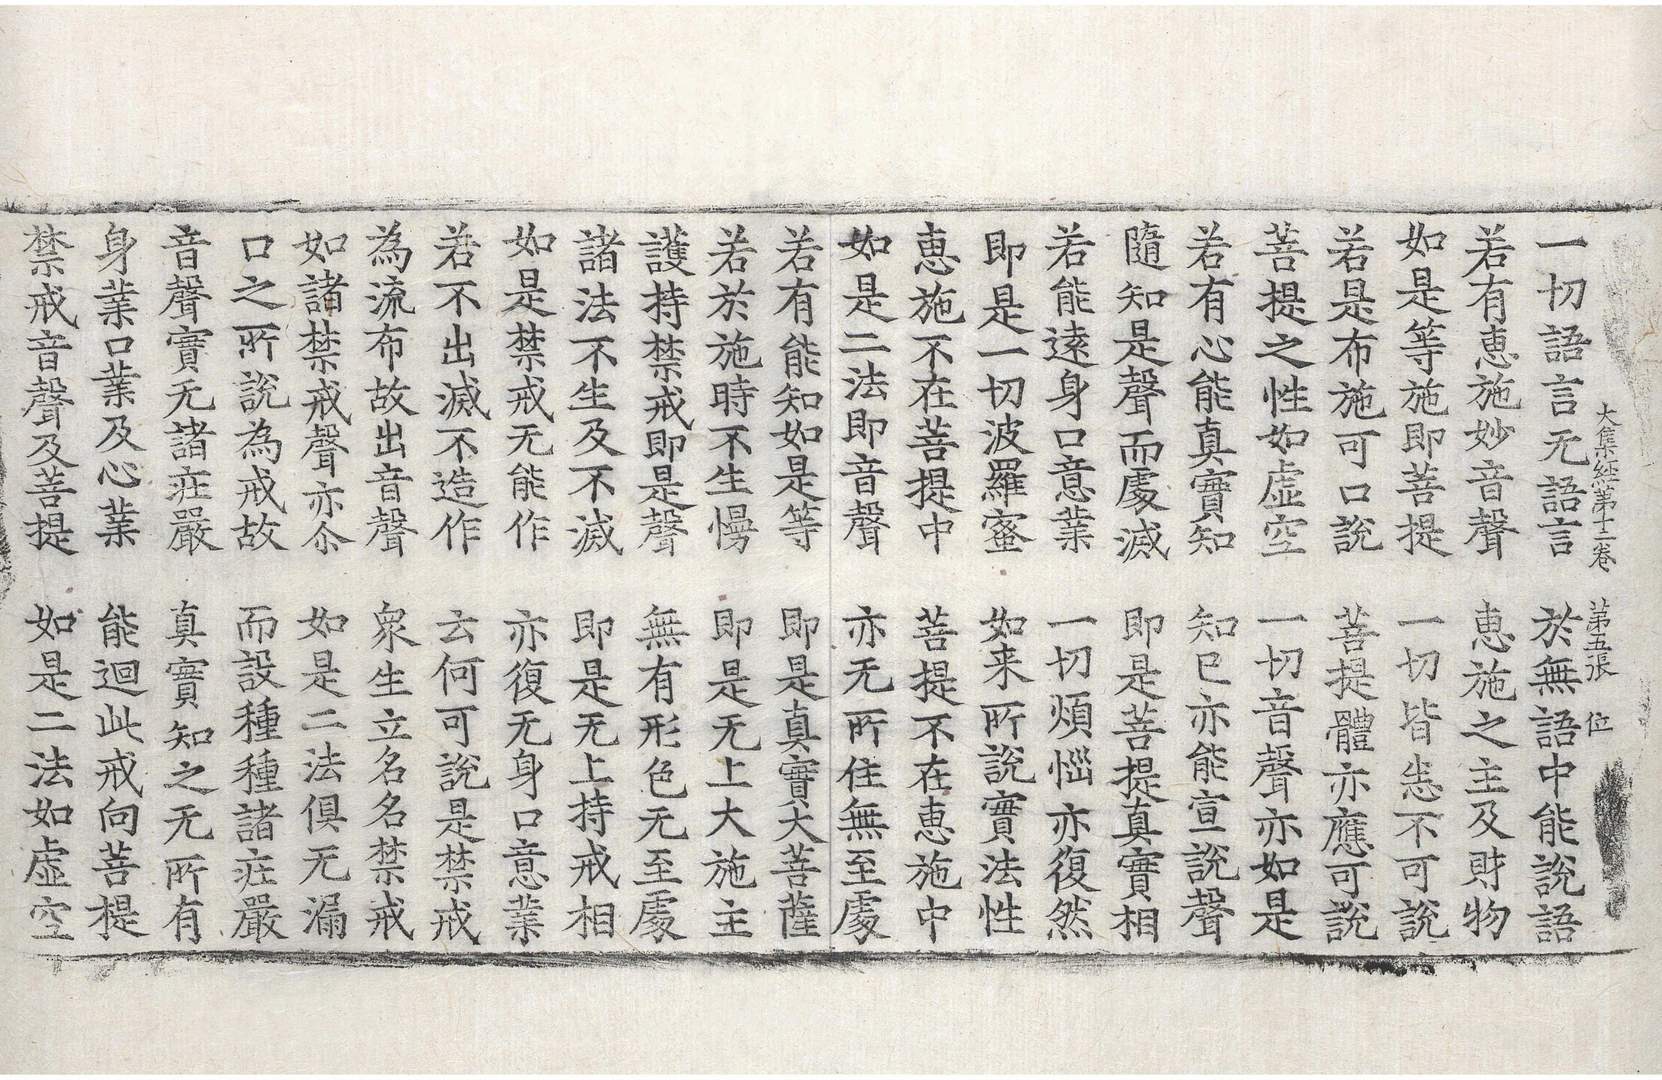 大集經第十二卷 第五張 位
一切語言无語言 於無語中能說語
若有恵施妙音聲 恵施之主及財物
如是等施即菩提 一切皆悉不可說
若是布施可口說 菩提體亦應可說
菩提之性如虛空 一切音聲亦如是
若有心能真實知 知已亦能宣說聲
隨知是聲而處滅 即是菩提真實相
若能遠身口意業 一切煩惱亦復然
即是一切波羅蜜 如来所說實法性
恵施不在菩提中 菩提不在恵施中
如是二法即音聲 亦无所住無至處
若有能知如是等 即是真實大菩薩
若於施時不生慢 即是无上大施主
護持禁戒即是聲 無有形色无至處
諸法不生及不滅 即是无上持戒相
如是禁戒无能作 亦復无身口意業
若不出滅不造作 云何可說是禁戒
為流布故出音聲 衆生立名名禁戒
如諸禁戒聲亦尒 如是二法俱无漏
口之所說為戒故 而設種種諸莊嚴
音聲實无諸莊嚴 真實知之无所有
身業口業及心業 能迴此戒向菩提
禁戒音聲及菩提 如是二法如虛空